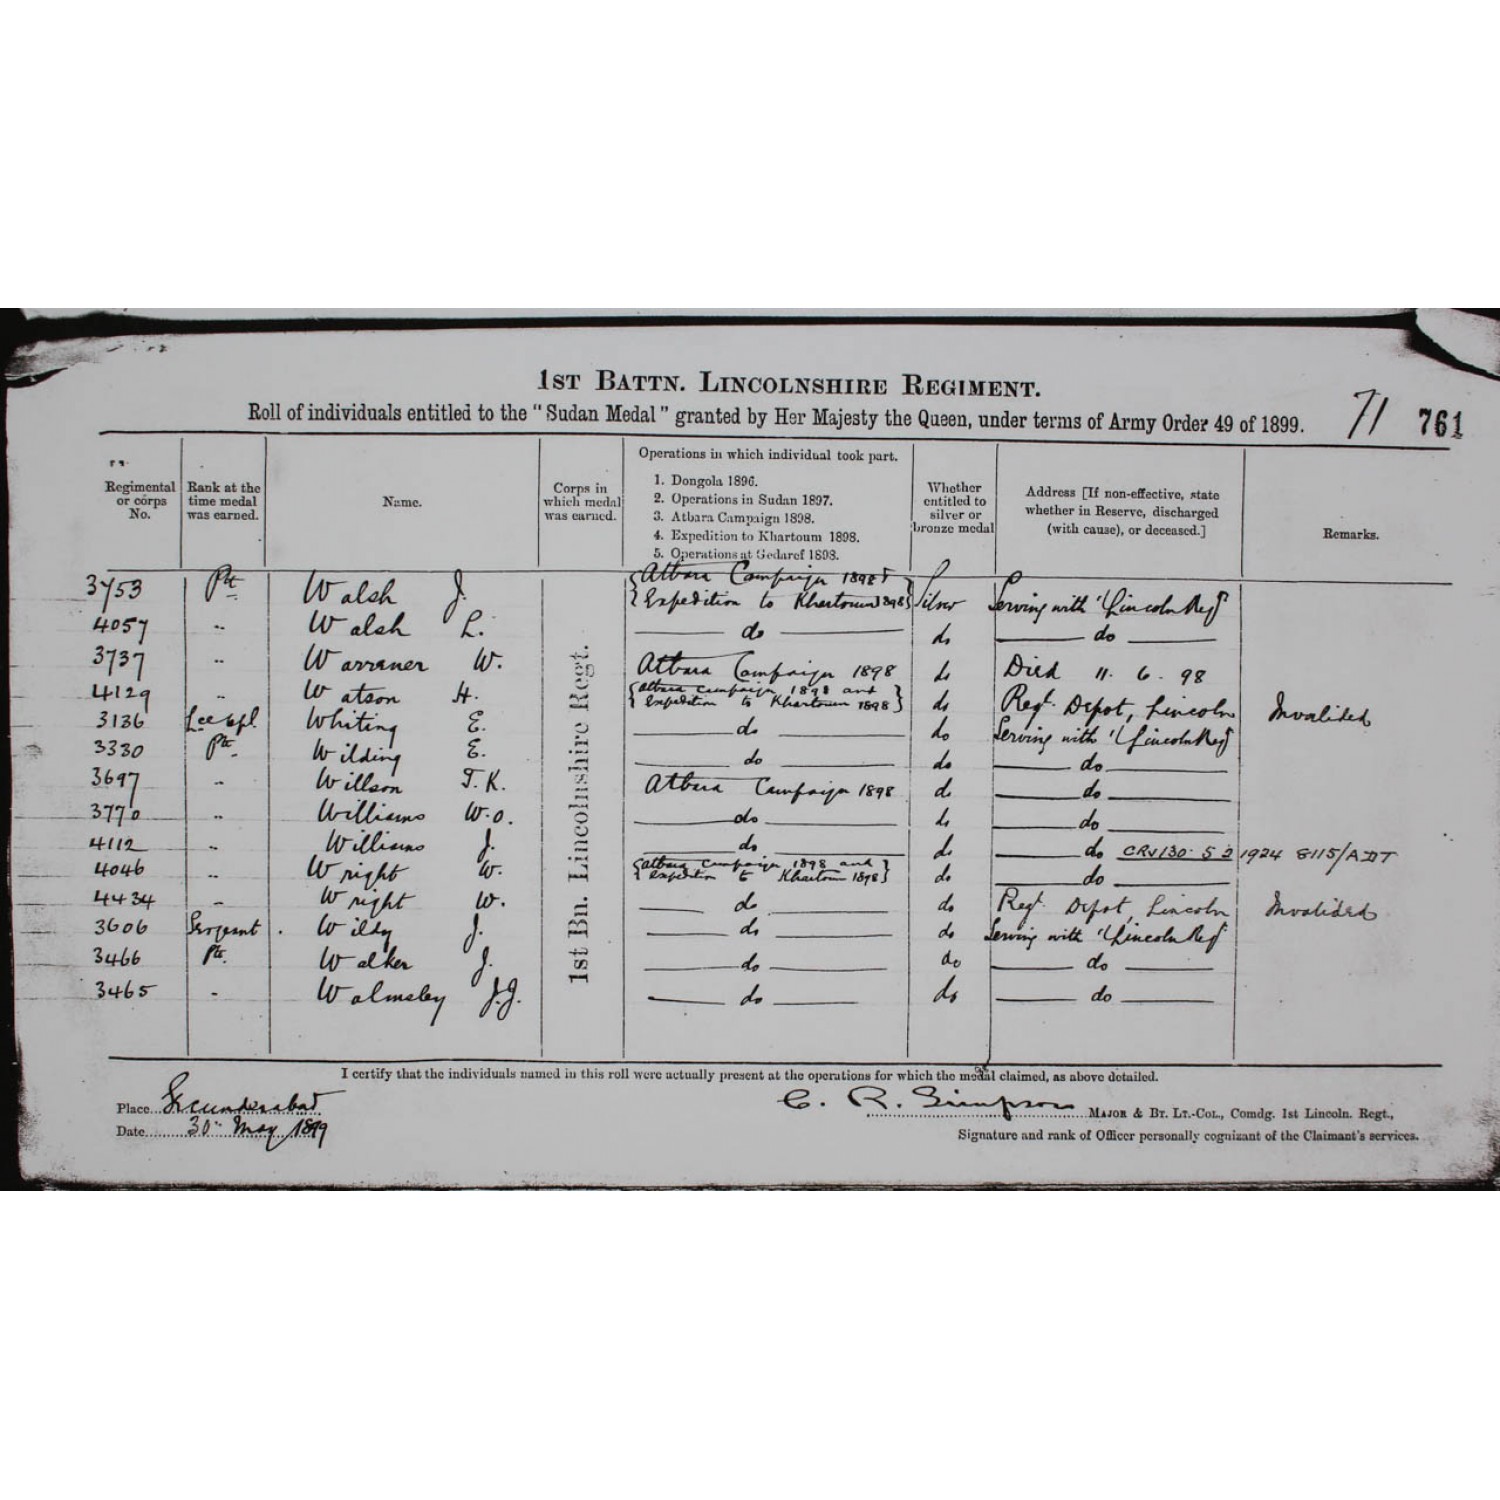 1ST BATTN. LINCOLNSHIRE REGIMENT.
Roll of individuals entitled to the "Sudan Medal" granted by Her Majesty the Queen, under terms of Army Order 49 of 1899. 71 761
Regimental or corps No.
Rank at the time medal was earned.
Name.
Corps in which medal was earned.
Operations in which individual took part.
1. Dongola 1896.
2. Operations in Sudan 1897.
3. Atbara Campaign 1898.
4. Expedition to Khartoum 1898.
5. Operations at Gedaref 1898.
Whether entitled to silver or bronze medal
Address [If non-effective, state whether in Reserve, discharged (with cause), or deceased.]
Remarks.
1st Bn. Lincolnshire Regt.
3753 Pte Walsh J. {Atbara Campaign 1898 & Expedition to Khartoum 1898} Silver Serving with 1/Lincoln Regt
4057 " Walsh L. do do do
3737 " Warrener W. Atbara Campaign 1898 do Died 11. 6. 98
4129 " Watson H. {Atbara Campaign 1898 and Expedition to Khartoum 1898} do Regt. Depot, Lincoln Invalided
3136 Lce Cpl. Whiting E. do do Serving with 1/Lincoln Regt
3330 Pte Wilding E. do do do
3697 " Willson T.K. Atbara Campaign 1898 do do
3770 " Williams W.O. do do do
4112 " Williams J. do do do 1924 8115/ADT
4046 " Wright W. {Atbara Campaign 1898 and Expedition to Khartoum 1898} do do
4434 Wright W. do do Regt. Depot, Lincoln Invalided
3606 Sergeant Wildy J. do do Serving with 1/Lincoln Regt
3466 Pte. Walker J. do do do
3465 " Walmsley J.J. do do do
I certify that the individuals named in this roll were actually present at the operations for which the medal claimed, as above detailed.
Place Secunderabad
Date 30th May 1899
C. R. Simpson MAJOR & BT. LT.-COL., Comdg. 1st Lincoln. Regt.,
Signature and rank of Officer personally cognizant of the Claimant's services.